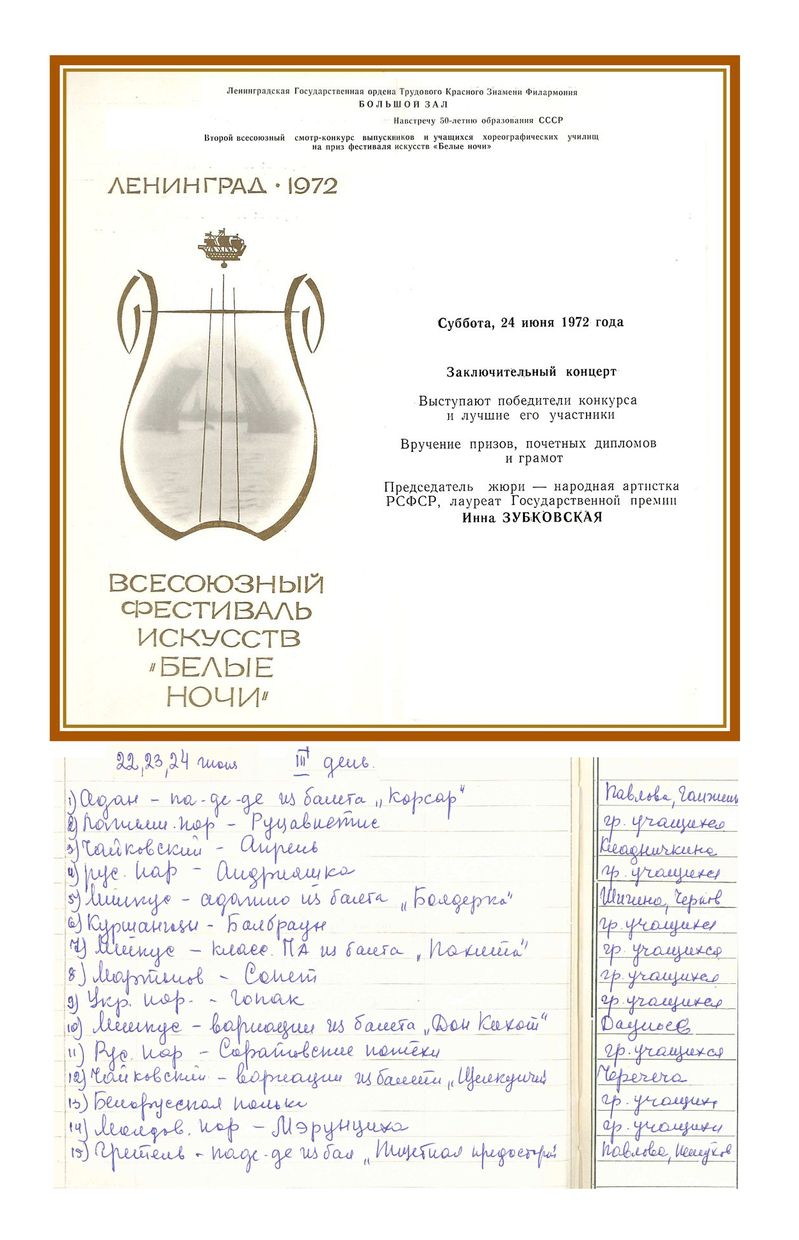 Ленинградская Государственная ордена Трудового Красного Знамени Филармония
БОЛЬШОЙ ЗАЛ
Навстречу 50-летию образования СССР
Второй всесоюзный смотр-конкурс выпускников и учащихся хореографических училищ
на приз фестиваля искусств «Белые ночи»
ЛЕНИНГРАД · 1972
Суббота, 24 июня 1972 года
Заключительный концерт
Выступают победители конкурса
и лучшие его участники
Вручение призов, почетных дипломов
и грамот
Председатель жюри — народная артистка
РСФСР, лауреат Государственной премии
Инна ЗУБКОВСКАЯ
ВСЕСОЮЗНЫЙ
ФЕСТИВАЛЬ
ИСКУССТВ
"БЕЛЫЕ
НОЧИ"
22, 23, 24 июня III день.
1) Адан – па-де-де из балета „Корсар" Павлова,
2) Латыш. нар – Руцавиетис гр. учащихся
3) Чайковский – Апрель
4) рус. нар – Андрияшка гр. учащихся
5) Минкус – адажио из балета „Баядерка" Шигина,
6) – гр. учащихся
7) Минкус – класс. ПА из балета „Пахита" гр. учащихся
8) Мартынов – Сонет гр. учащихся
9) Укр. нар. – Гопак гр. учащихся
10) Минкус – вариации из балета „Дон Кихот"
11) Рус. нар – Саратовские потехи гр. учащихся
12) Чайковский – вариации из балета „Щелкунчик
13) Белорусская полька гр. учащихся
14) Молдов. нар – Мэрунцика гр. учащихся
15) – па де-де из бал „Тщетная предосторож Павлова,